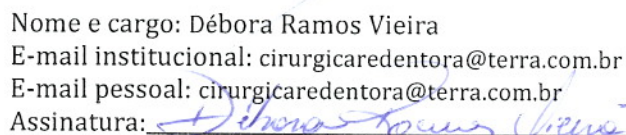 Nome e cargo: Débora Ramos Vieira
E-mail institucional: cirurgicaredentora@terra.com.br
E-mail pessoal: cirurgicaredentora@terra.com.br
Assinatura: Débora Ramos Vieira